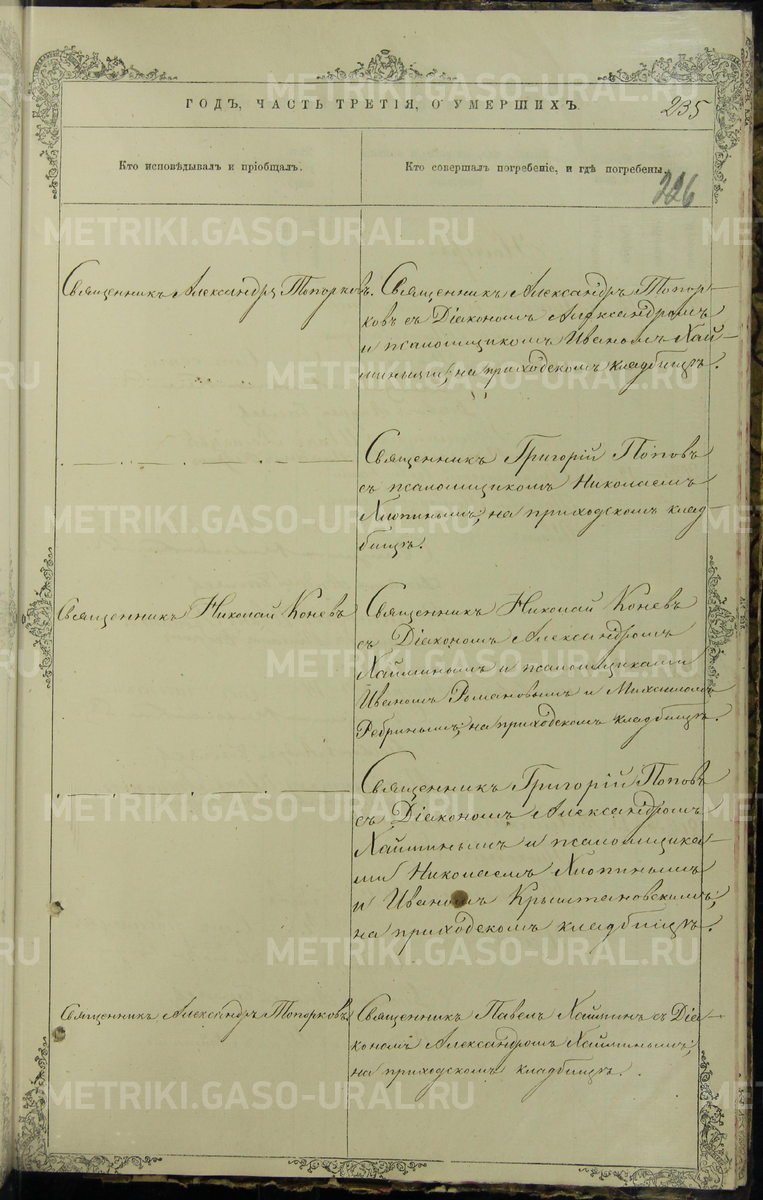 ГОДЪ, ЧАСТЬ ТРЕТІЯ, О УМЕРШИХЪ.
235
Кто исповѣдывалъ и пріобщалъ.
Кто совершалъ погребеніе, и гдѣ погребены.
226
Священникъ Александръ Топорковъ.
Священникъ Александръ Топор-
ковъ съ Діакономъ Александромъ
и псаломщикомъ Иваномъ Хай-
миными, на приходскомъ кладбищѣ.
Священникъ Григорій Поповъ
съ псаломщикомъ Николаемъ
Хлопинымъ, на приходскомъ клад-
бищѣ.
Священникъ Николай Коневъ
Священникъ Николай Коневъ
съ Діакономъ Александромъ
Хайминымъ и псаломщиками
Иваномъ Романовымъ и Михаиломъ
Ребринымъ, на приходскомъ кладбищѣ.
Священникъ Григорій Поповъ
съ Діакономъ Александромъ
Хайминымъ и псаломщика-
ми Николаемъ Хлопинымъ
и Иваномъ Крыштановскимъ,
на приходскомъ кладбищѣ.
Священникъ Александръ Топорковъ
Священникъ Павелъ Хайминъ съ Діа-
кономъ Александромъ Хайминымъ,
на приходскомъ кладбищѣ.
METRIKI.GASO-URAL.RU